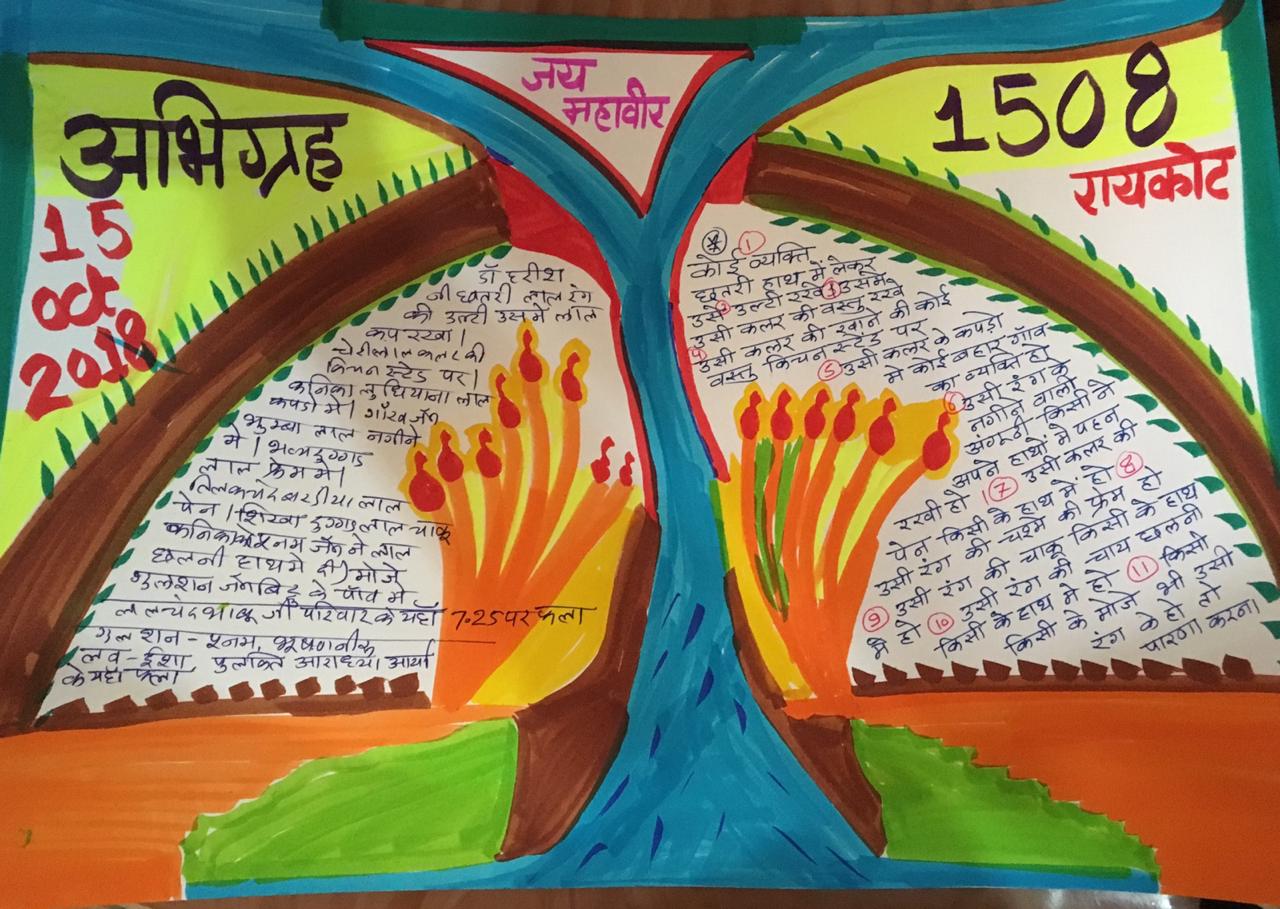 जय
महावीर
अभिग्रह
15
oct
2018
1508
रायकोट
डॉ हरीश
जी छतरी लाल रंग
की उल्टी उसमे लाल
कप रखा।
चेरी लाल कलर की
किचन स्टैड पर।
कनिका लुधियाना लाल
कपडो में।
जैन
भुम्बा लाल नगीने
मे।
लाल फ्रेम में।
तिलकचंद बरडीया लाल
पेन। शिखा डुग्गड़ लाल चाकू
जैन ने लाल
छलनी हाथ मे ली) मोजे
गुलशन जैन के पाव मे
जी परिवार के यहाँ 7.25 पर फला
गुलशन - पूनम, भूषण
लव - ईशा आराध्या आर्या
के यहाँ फला
①
कोई व्यक्ति
छतरी हाथ में लेकर
उसे ② उल्टी रखे ③ उसमे
उसी कलर की वस्तु रखे
④ उसी कलर की खाने की कोई
वस्तु किचन स्टैड पर
⑤ उसी कलर के कपडो
मे कोई बहार गाँव
का व्यक्ति हो
⑥ उसी रंग के
नगीने वाली
अंगूठी किसी ने
अपने हाथों में पहन
रखी हो। ⑦ उसी कलर की
पेन किसी के हाथ में हो ⑧
उसी रंग की चश्मे की फ्रेम हो
⑨ उसी रंग की चाकू किसी के हाथ
मे हो ⑩ उसी रंग की चाय छलनी
किसी के हाथ मे हो ⑪ किसी
किसी के मोजे भी उसी
रंग के हो तो
पारणा करना।